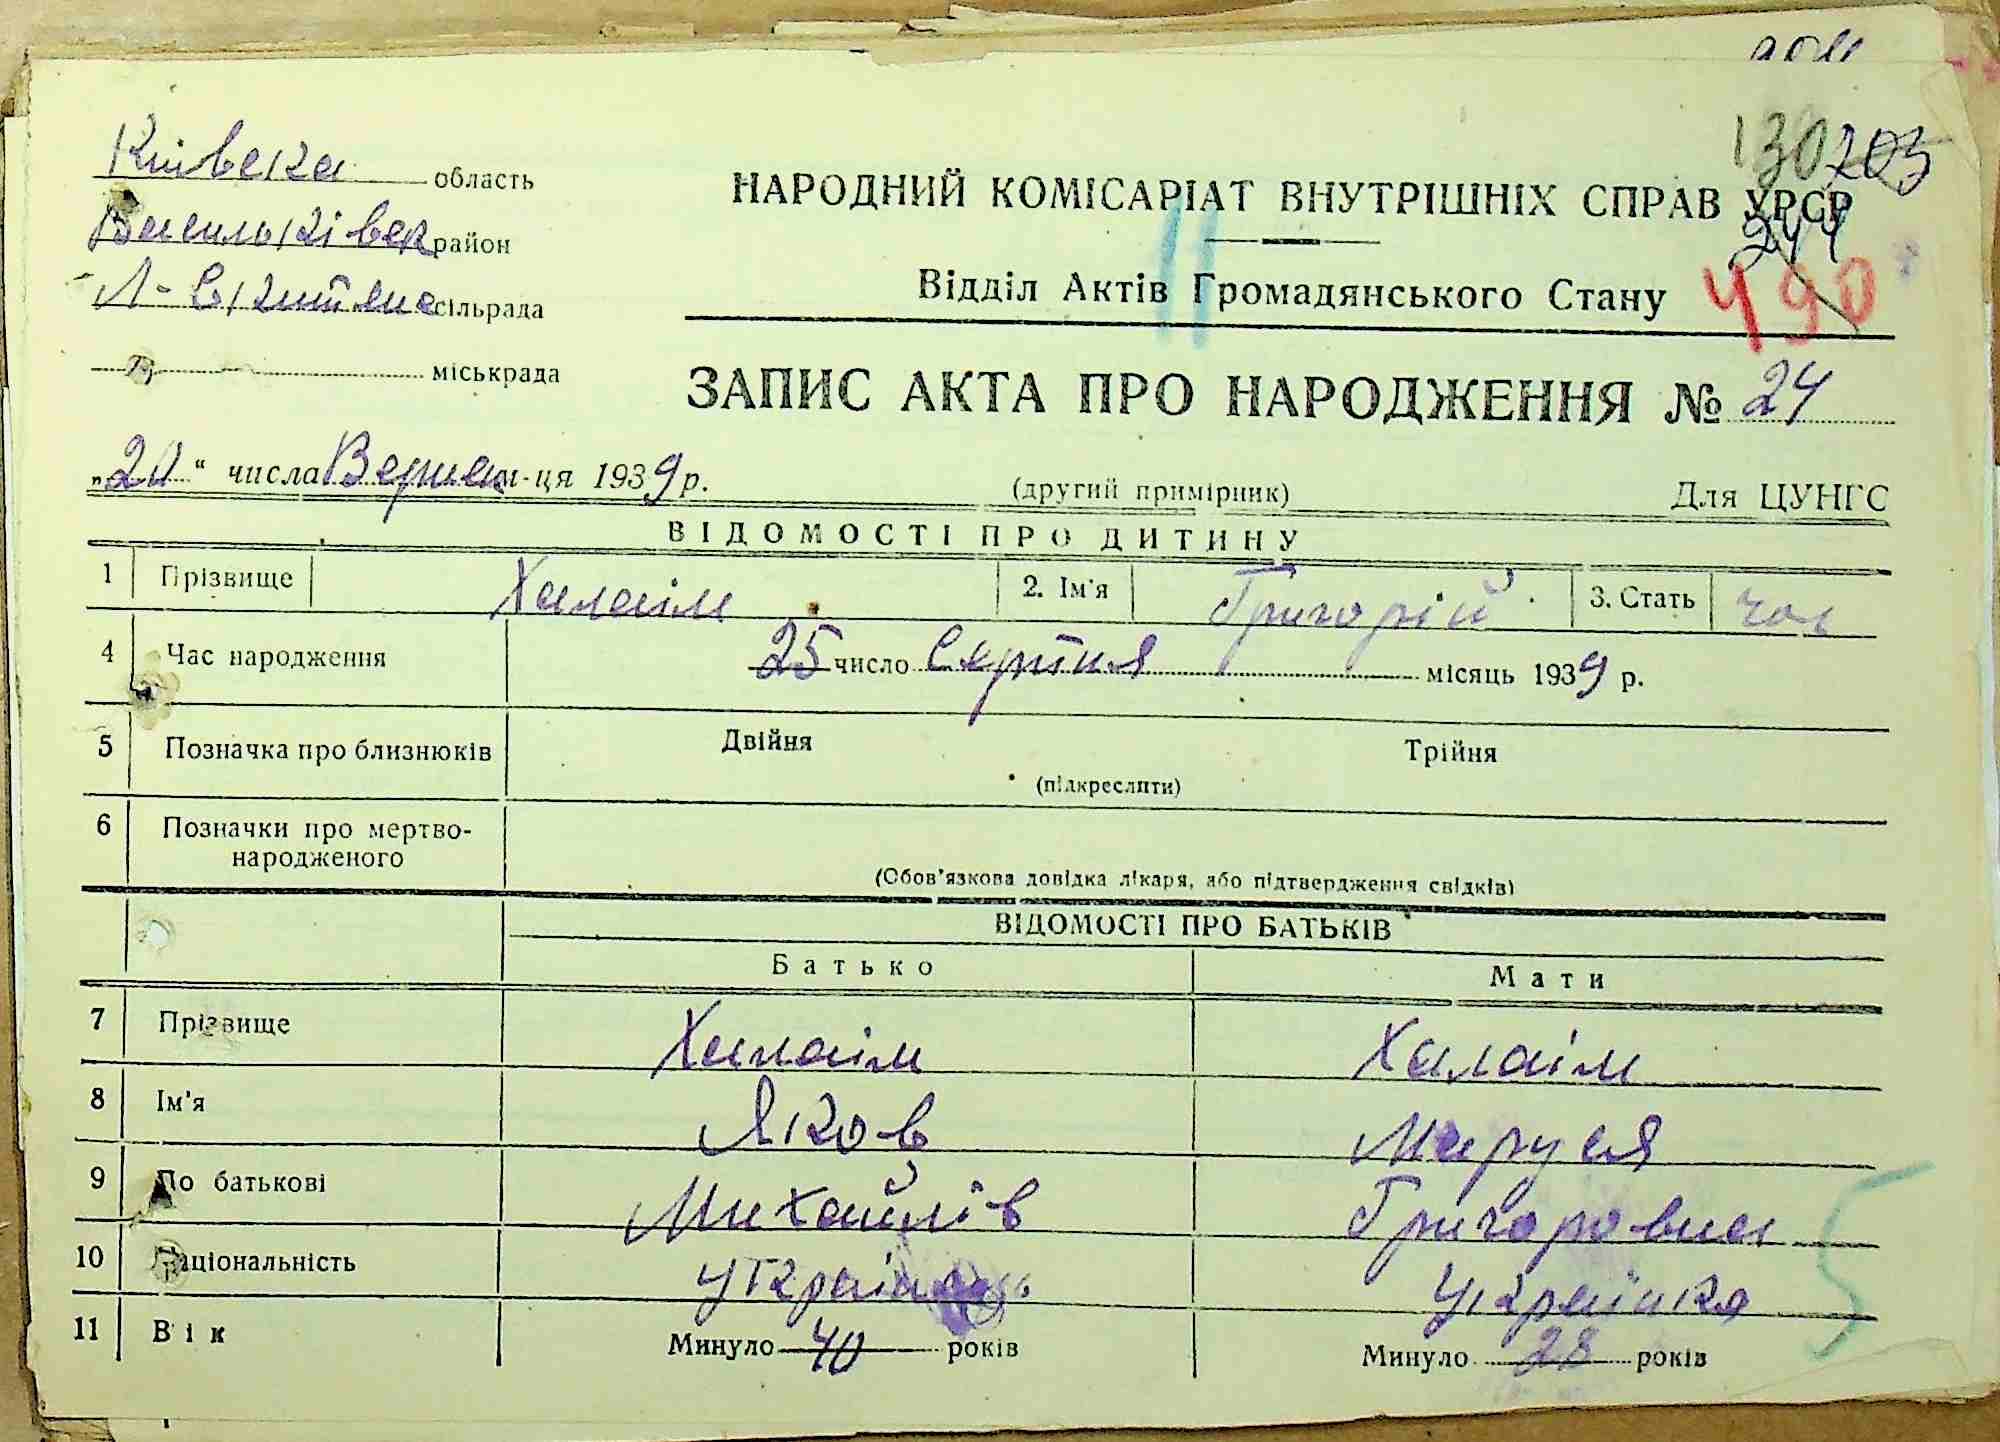 130 203
Київска область
НАРОДНИЙ КОМІСАРІАТ ВНУТРІШНІХ СПРАВ УРСР
Васильківск район
244
Відділ Актів Громадянського Стану
490
11
сільрада
міськрада
ЗАПИС АКТА ПРО НАРОДЖЕННЯ № 24
„20“ числа Версня м-ця 1939 р.
(другий примірник)
Для ЦУНГС
ВІДОМОСТІ ПРО ДИТИНУ
1 Прізвище Халаім 2. Ім'я Григорій 3. Стать чол
4 Час народження 25 число Серпня місяць 1939 р.
5 Позначка про близнюків Двійня Трійня
(підкреслити)
6 Позначки про мертво-
народженого
(Обов'язкова довідка лікаря, або підтвердження свідків)
ВІДОМОСТІ ПРО БАТЬКІВ
Батько Мати
7 Прізвище Халаім Халаім
8 Ім'я Яков Маруся
9 По батькові Михайлів Григоровна
10 Національність українець Українка
11 Вік Минуло 40 років Минуло 28 років
5